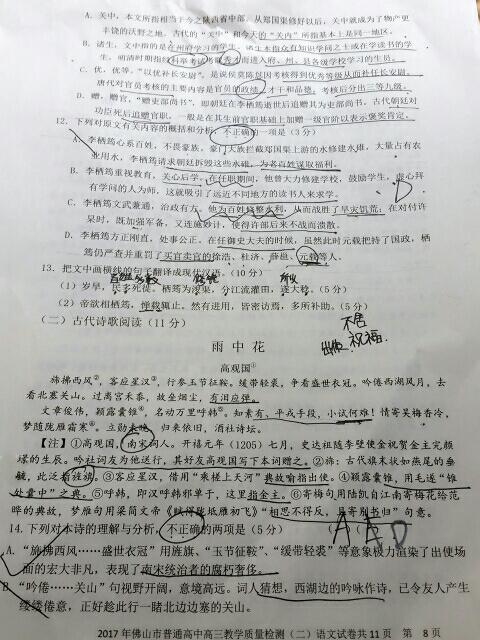 A. 关中，本文所指相当于今之陕西省中部。从郑国渠修好以后，关中就成为了物产更
丰饶的沃野之地，古代的“关中”和今天的“关内”所指基本上是同一地区。
B. 诸生，文中所指的是在州府学习的学生。诸生本指众有知识学问之士或在学读书的学
生，明清时期指经科举考试考取秀才而进入府、州、县各级学校学习的生员。
C. 优，优等。“以优补长安尉”，是说侯莫陈㤓因考核得到优秀等级从而补任长安尉。
唐代对官员考核的主要内容是官员的政绩、才干和品德，考核后分出三等九级。
D. 赠，赠官，“赠吏部尚书”，即朝廷在李栖筠逝世后追赠其为吏部尚书。古代朝廷对
功臣死后追赠官职，一般是在其生前官职基础上加赠一级官阶以表示褒奖肯定。
12. 下列对原文有关内容的概括和分析，不正确的一项是（3分）
A. 李栖筠心系百姓，不畏豪族。豪门大族拦截郑国渠上游的水修建水碓，大量占有农
业用水，李栖筠请求朝廷拆毁这些水碓，为老百姓谋取福利。
B. 李栖筠重视教育，关心后学。在任职期间，他曾大力修建学校，鼓励学生，虚心拜
有学问的人为师，这就吸引了远近不同地方的读书人来求学。
C. 李栖筠文武兼通，治政有方。他为百姓修整水利，从而战胜了旱灾饥荒；在对付许
杲时，既加强军备，又连施妙计，使得许部后来不战而溃散。
D. 李栖筠方正刚直，处事公正。在任御史大夫的时候，虽然此时元载把持了国政，栖
筠仍严查并重罚了买官卖官的徐浩、杜济、薛邕、元载等人。
13. 把文中画横线的句子翻译成现代汉语。（10分）
（1）岁旱，民多死徙。栖筠为浚渠，分江流灌田，遂大稔。（5分）
（2）帝欲相栖筠，惮载辄止。然有进用，皆密访焉，多所补助。（5分）
（二）古代诗歌阅读（11分）
不舍
出使 祝福
雨中花
高观国①
旆拂西风②，客应星汉③，行参玉节征鞍。缓带轻裘，争看盛世衣冠。吟倦西湖风月，去
看北塞关山。过离宫禾黍，故垒烟尘，有泪应弹。
文章俊伟，颖露囊锥④，名动万里呼韩⑤。知素有、平戎手段，小试何难！情寄吴梅香冷，
梦随陇雁霜寒⑥。立勋未晚，归来依旧，酒社诗坛。
【注】①高观国，南宋词人。开禧元年（1205）七月，史达祖随李壁使金祝贺金主完颜
璟的生辰。吟社词友为他送行，其好友高观国写下本词赠之。②旆：古代旗末状如燕尾的垂
旒，此泛指旌旗。③客应星汉，借用“乘槎上天河”典故喻指出使。④颖露囊锥，用毛遂“锥
处囊中”之典。⑤呼韩，即汉呼韩邪单于，这里指金主。⑥寄梅句用陆凯自江南寄梅花给范
晔的典故，梦雁句用梁简文帝《赋得陇坻雁初飞》“相思不得反，且寄别书归”句意。
14. 下列对本诗的理解与分析，不正确的两项是（5分）
A. “旆拂西风……盛世衣冠”用旌旗、“玉节征鞍”、“缓带轻裘”等意象极力渲染了出使场
面的宏大非凡，表现了南宋统治者的腐朽奢侈。
B. “吟倦……关山”句视野开阔，意境高远。词人猜想，西湖边的吟咏诗作，已令友人产生
缕缕倦意，正好趁此行一睹北边塞的关山。
2017年佛山市普通高中高三教学质量检测（二）语文试卷共11页 第8页